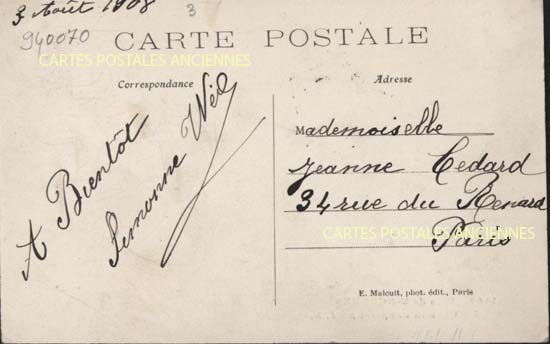 3 Août 1908
3
940070
CARTE POSTALE
CARTES POSTALES ANCIENNES
Correspondance
Adresse
A Bientôt
Simonne
Mademoiselle
Jeanne Cedard
34 rue du Renard
CARTES POSTALES ANCIENNES
Paris
E. Malcuit, phot. édit., Paris